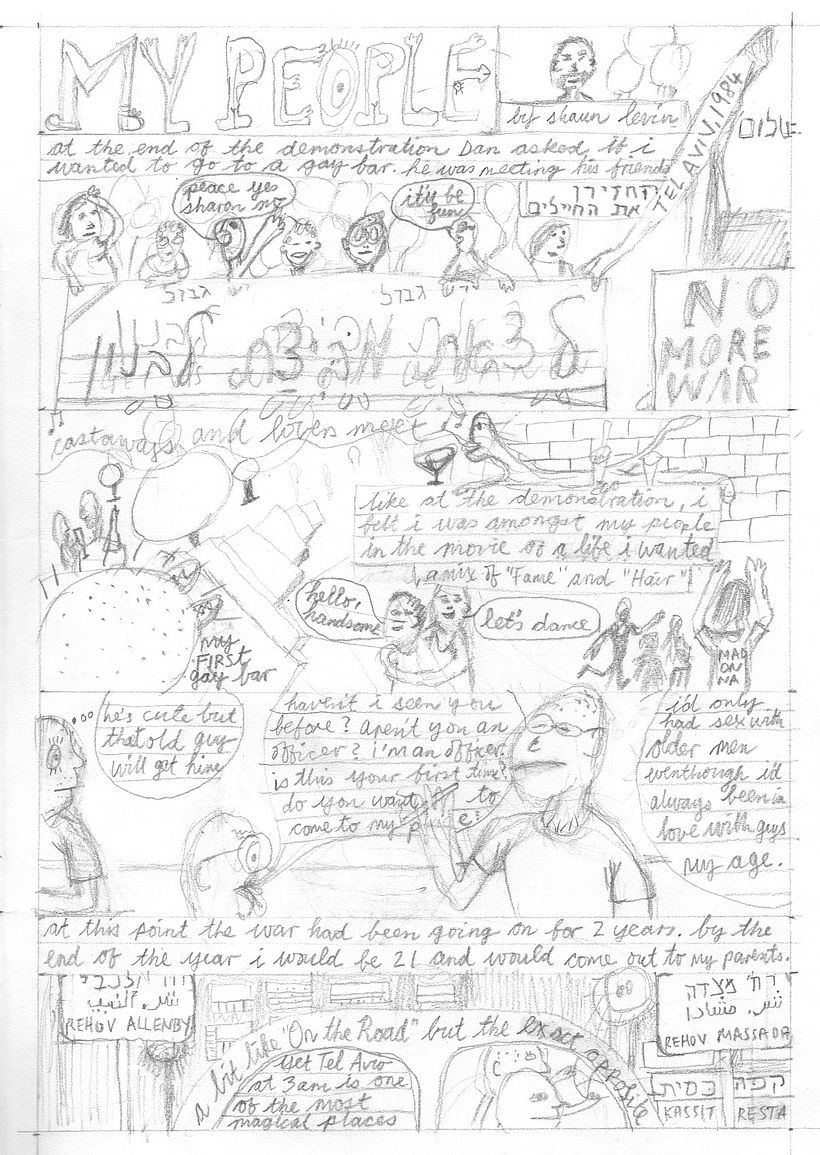 MY PEOPLE
by shaun levin
TEL AVIV, 1984
שלום
at the end of the demonstration Dan asked if i
wanted to go to a gay bar. he was meeting his friends
peace yes
sharon no
it'll be
fun
תחזירו
את החיילים
יש גבול
יש גבול
לצאת
לבנון
NO
MORE
WAR
castaways and lovers meet
like at the demonstration, i
felt i was amongst my people
in the movie of a life i wanted
a mix of "Fame" and "Hair"
hello,
handsome
let's dance
my
FIRST
gay bar
MAD
ON
NA
he's cute but
that old guy
will get him
haven't i seen you
before? aren't you an
officer? i'm an officer.
is this your first time?
do you want to
come to my
i'd only
had sex with
older men
eventhough i'd
always been in
love with guys
my age.
at this point the war had been going on for 2 years. by the
end of the year i would be 21 and would come out to my parents.
אלנבי
REHOV ALLENBY
רח' מצדה
REHOV MASSADA
a bit like "On the Road" but the exact opposite
yet Tel Aviv
at 3am is one
of the most
magical places
קפה
כסית
KASSIT
RESTA